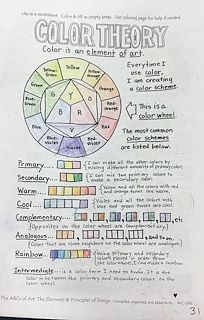 Use as a worksheet. Color & fill in empty areas. Use colored page for help if needed.
COLOR THEORY
Color is an element of art.
Yellow
Yellow-Green
Yellow-Orange
Green
Orange
Blue-Green
Red-Orange
Blue
Red
Blue-Violet
Violet
Red-Violet
G
Y
O
B
R
V
Everytime I
use color,
I am creating
a color scheme.
This is a
color wheel.
The most common
color schemes
are listed below.
Primary....
I can make all the other colors by
mixing different amounts of primary colors.
Secondary....
I can mix two primary colors to
make a secondary color.
Warm....
Yellow and all the colors with red
and orange tones are warm.
Cool....
Violet and all the colors with
blue and green tones are cool.
Complementary....
, etc.
(Opposites on the color wheel are complementary.)
Analogous....
, and so on.
(Colors that are close neighbors on the color wheel are analogous.)
Rainbow....
Using primary and secondary
colors placed in order from
the color wheel, I can make a rainbow.
Intermediate.... is a color term I need to know. It is the
color in between the primary and secondary colors on the
color wheel.
The ABCs of Art: The Elements & Principles of Design
31